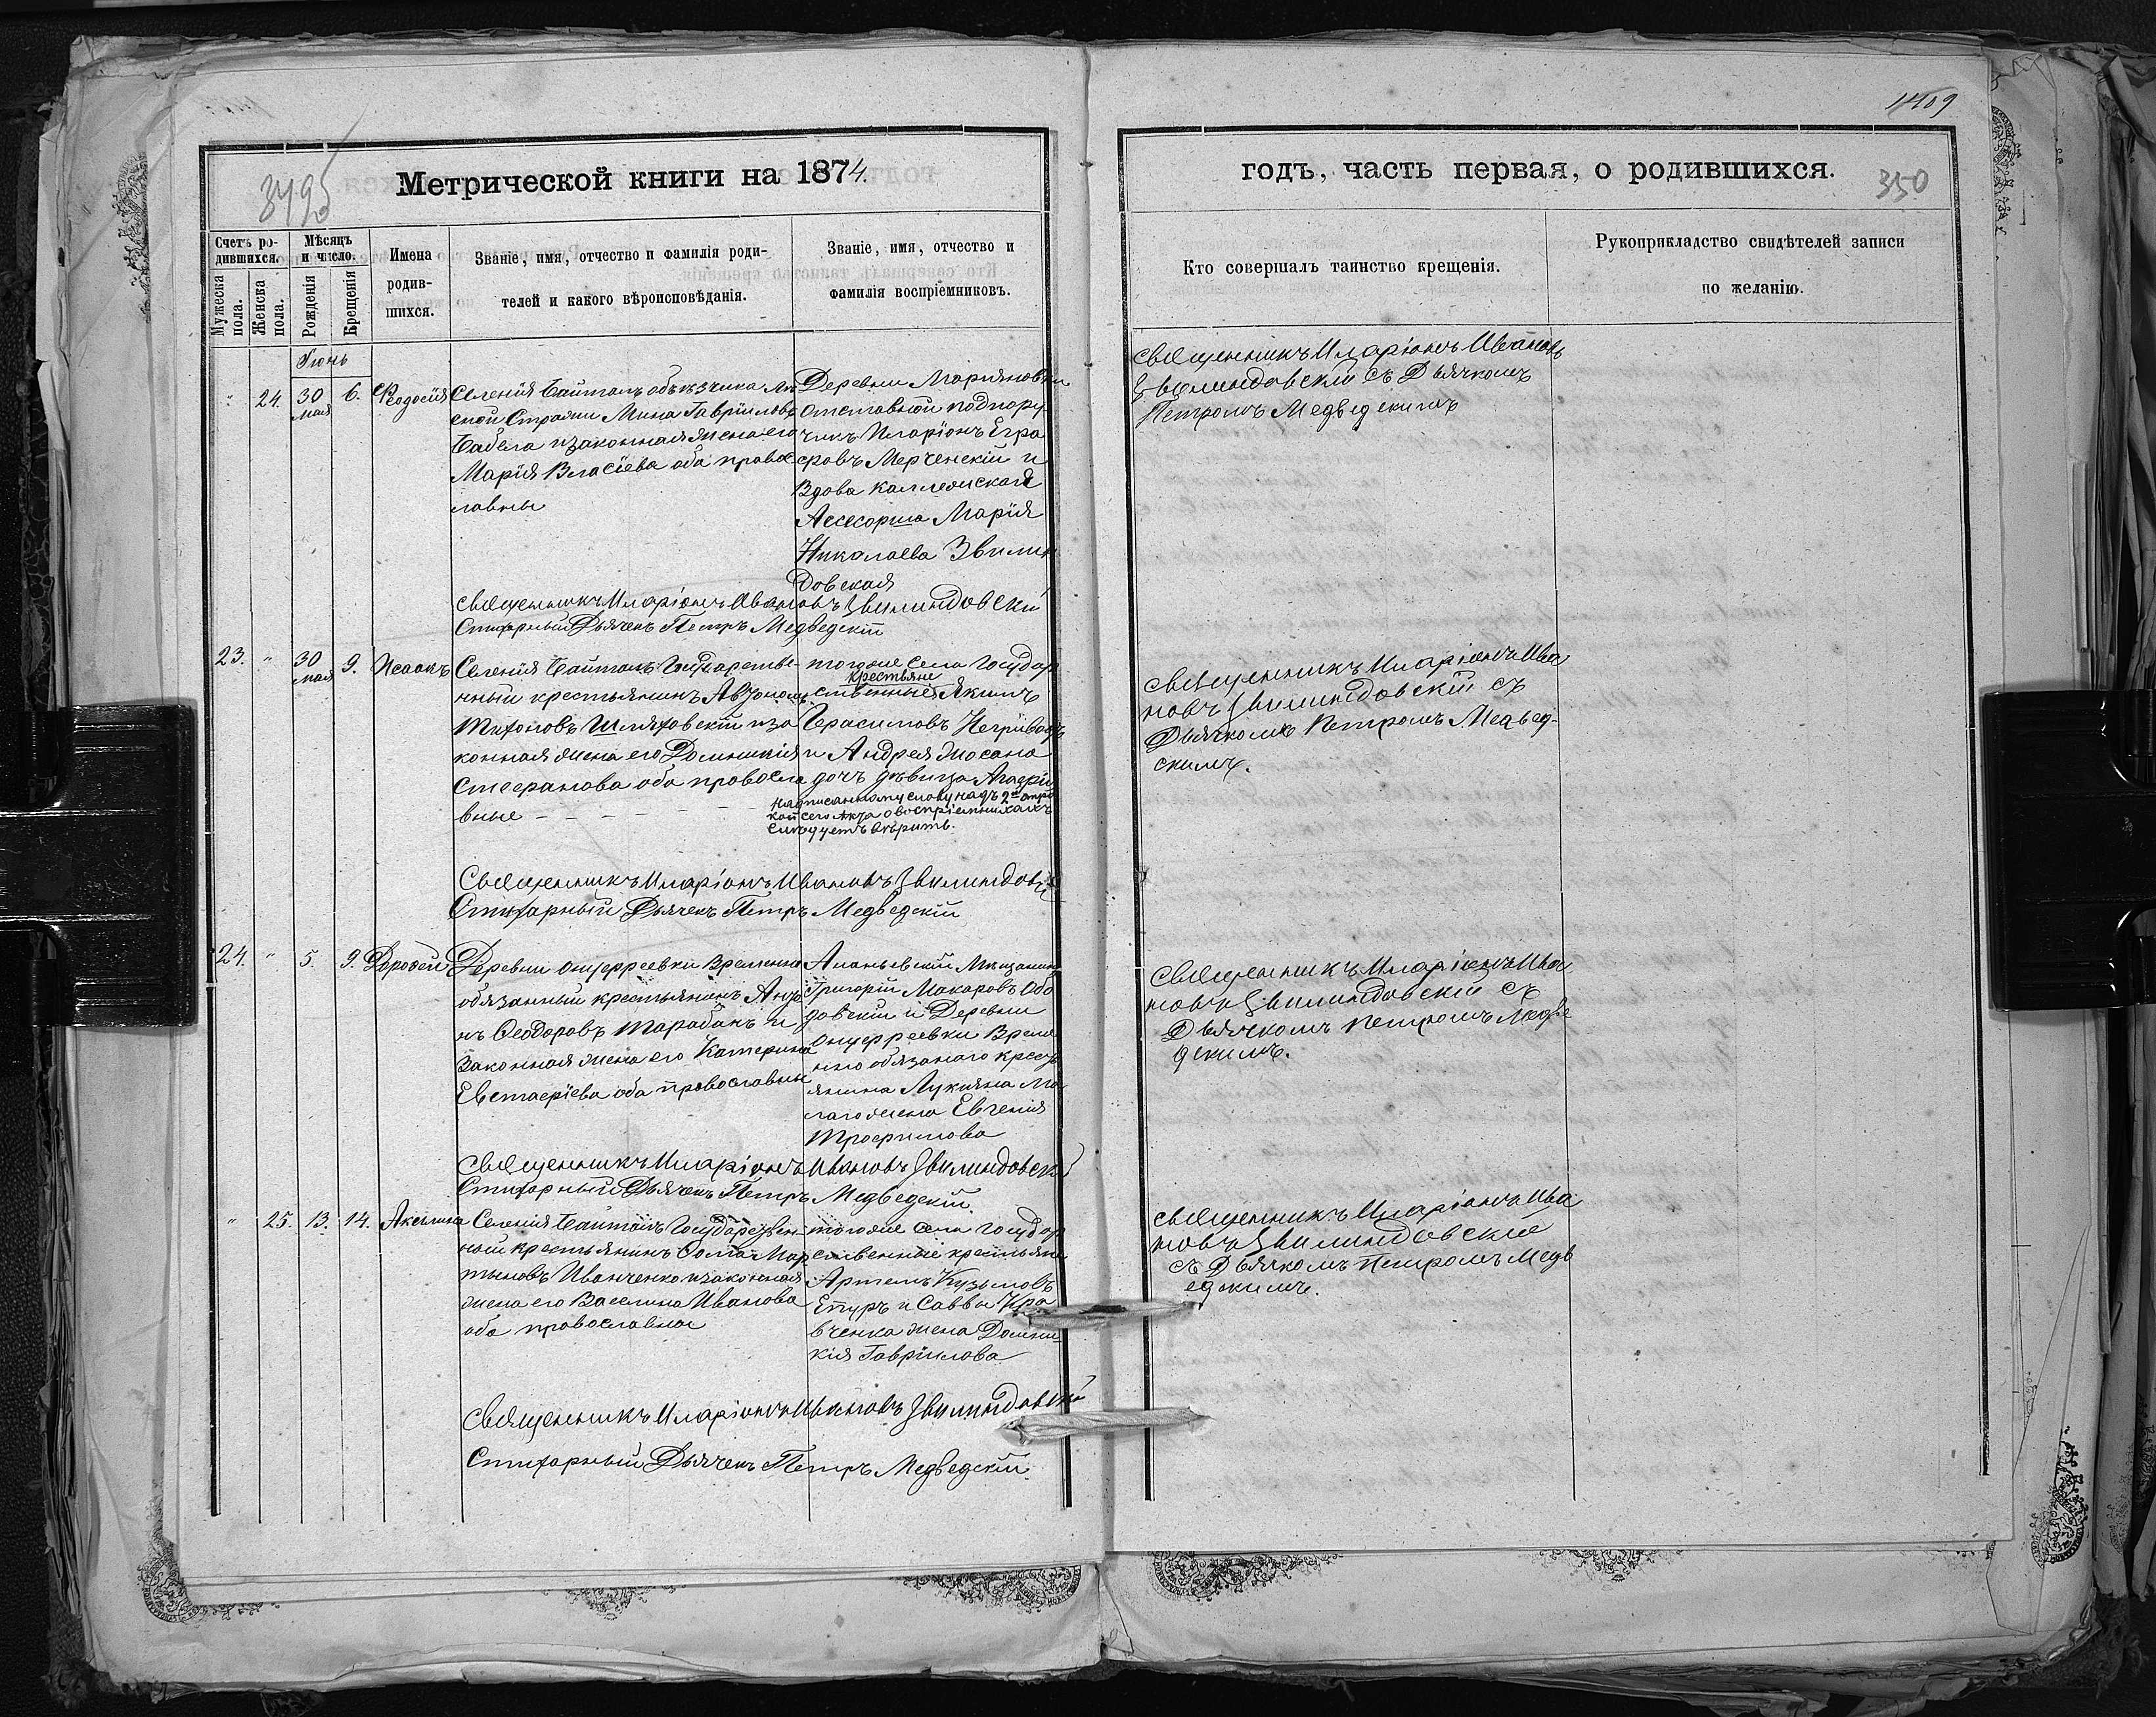 1409
3495
Метрической книги на 1874.
годъ, часть первая, о родившихся.
350
Счетъ ро-
дившихся.
Мужеска
пола.
Женска
пола.
Мѣсяцъ
и число.
Рожденія
Крещенія
Имена
родив-
шихся.
Званіе, имя, отчество и фамилія роди-
телей и какого вѣроисповѣданія.
Званіе, имя, отчество и
фамилія воспріемниковъ.
Кто совершалъ таинство крещенія.
Рукоприкладство свидѣтелей записи
по желанію.
Іюнь
" 24. 30 мая 6. Ѳеодосія
Селенія Байталъ объѣзчика
сной Стражи Мина Гавріиловъ
Бабела и законная жена его
Марія Власіева оба правос
лавны
Деревни Маріяновки
отставной подпору-
чикъ Иларіонъ Егра
фовъ Мерченскій и
Вдова Коллежская
Асесорша Марія
Николаева Звилин
довская
Священникъ Иларіонъ Ивановъ Звилиндовскій
Стихарный Дьячекъ Петръ Медведскій
Священникъ Иларіонъ Ивановъ
Звилиндовскій съ Дьячкомъ
Петромъ Медведскимъ
23. " 30 мая 9. Исаакъ
Селенія Байталъ Государстве-
нный крестьянинъ Автономъ
Тихоновъ Шляховскій и за
конная жена его Домникія
Стефанова оба правосла
вные - - - - -
тогоже села Государ
крестьяне
ственные Якимъ
Герасимовъ
и Андрея Мосана
дочь дѣвица Агафія
Надписанному слову надъ 2й стро
кой сего Акта о воспріемникахъ
слѣдуетъ вѣрить.
Священникъ Иларіонъ Ивановъ Звилиндовскій
Стихарный Дьячекъ Петръ Медведскій
Священникъ Иларіонъ Ива
новъ Звилиндовскій съ
Дьячкомъ Петромъ Медвед-
скимъ.
24. " 5. 9. Дорофей
Деревни Онуфреевки Временно
обязанный крестьянинъ
Ѳеодоровъ Тарабанъ и
Законная жена его Катерина
Евстафіева оба православные
Ананьевскій Мѣщанинъ
Григорій Макаровъ Обо
довскій и Деревни
Онуфреевки Време
нно обязанаго крест
янина Лукіяна
жена Евгенія
Трофимова
Священникъ Иларіонъ Ивановъ Звилиндовскій
Стихарный Дьячекъ Петръ Медведскій.
Священникъ Иларіонъ Ива
новъ Звилиндовскій съ
Дьячкомъ Петромъ Медве
дскимъ.
" 25. 13. 14. Акилина
Селенія Байталъ Государствен-
ный крестьянинъ Ѳома Мар
тыновъ Иванченко и законная
жена его Василина Иванова
оба православные
тогоже села Государ
ственные крестьяне
Артемъ Кузьмовъ
и Саввы Кра
вченка жена Домни-
кія Гавріилова
Священникъ Иларіонъ Ивановъ Звилиндовскій
Стихарный Дьячекъ Петръ Медведскій.
Священникъ Иларіонъ Ива
новъ Звилиндовскій
съ Дьячкомъ Петромъ Медв
едскимъ.